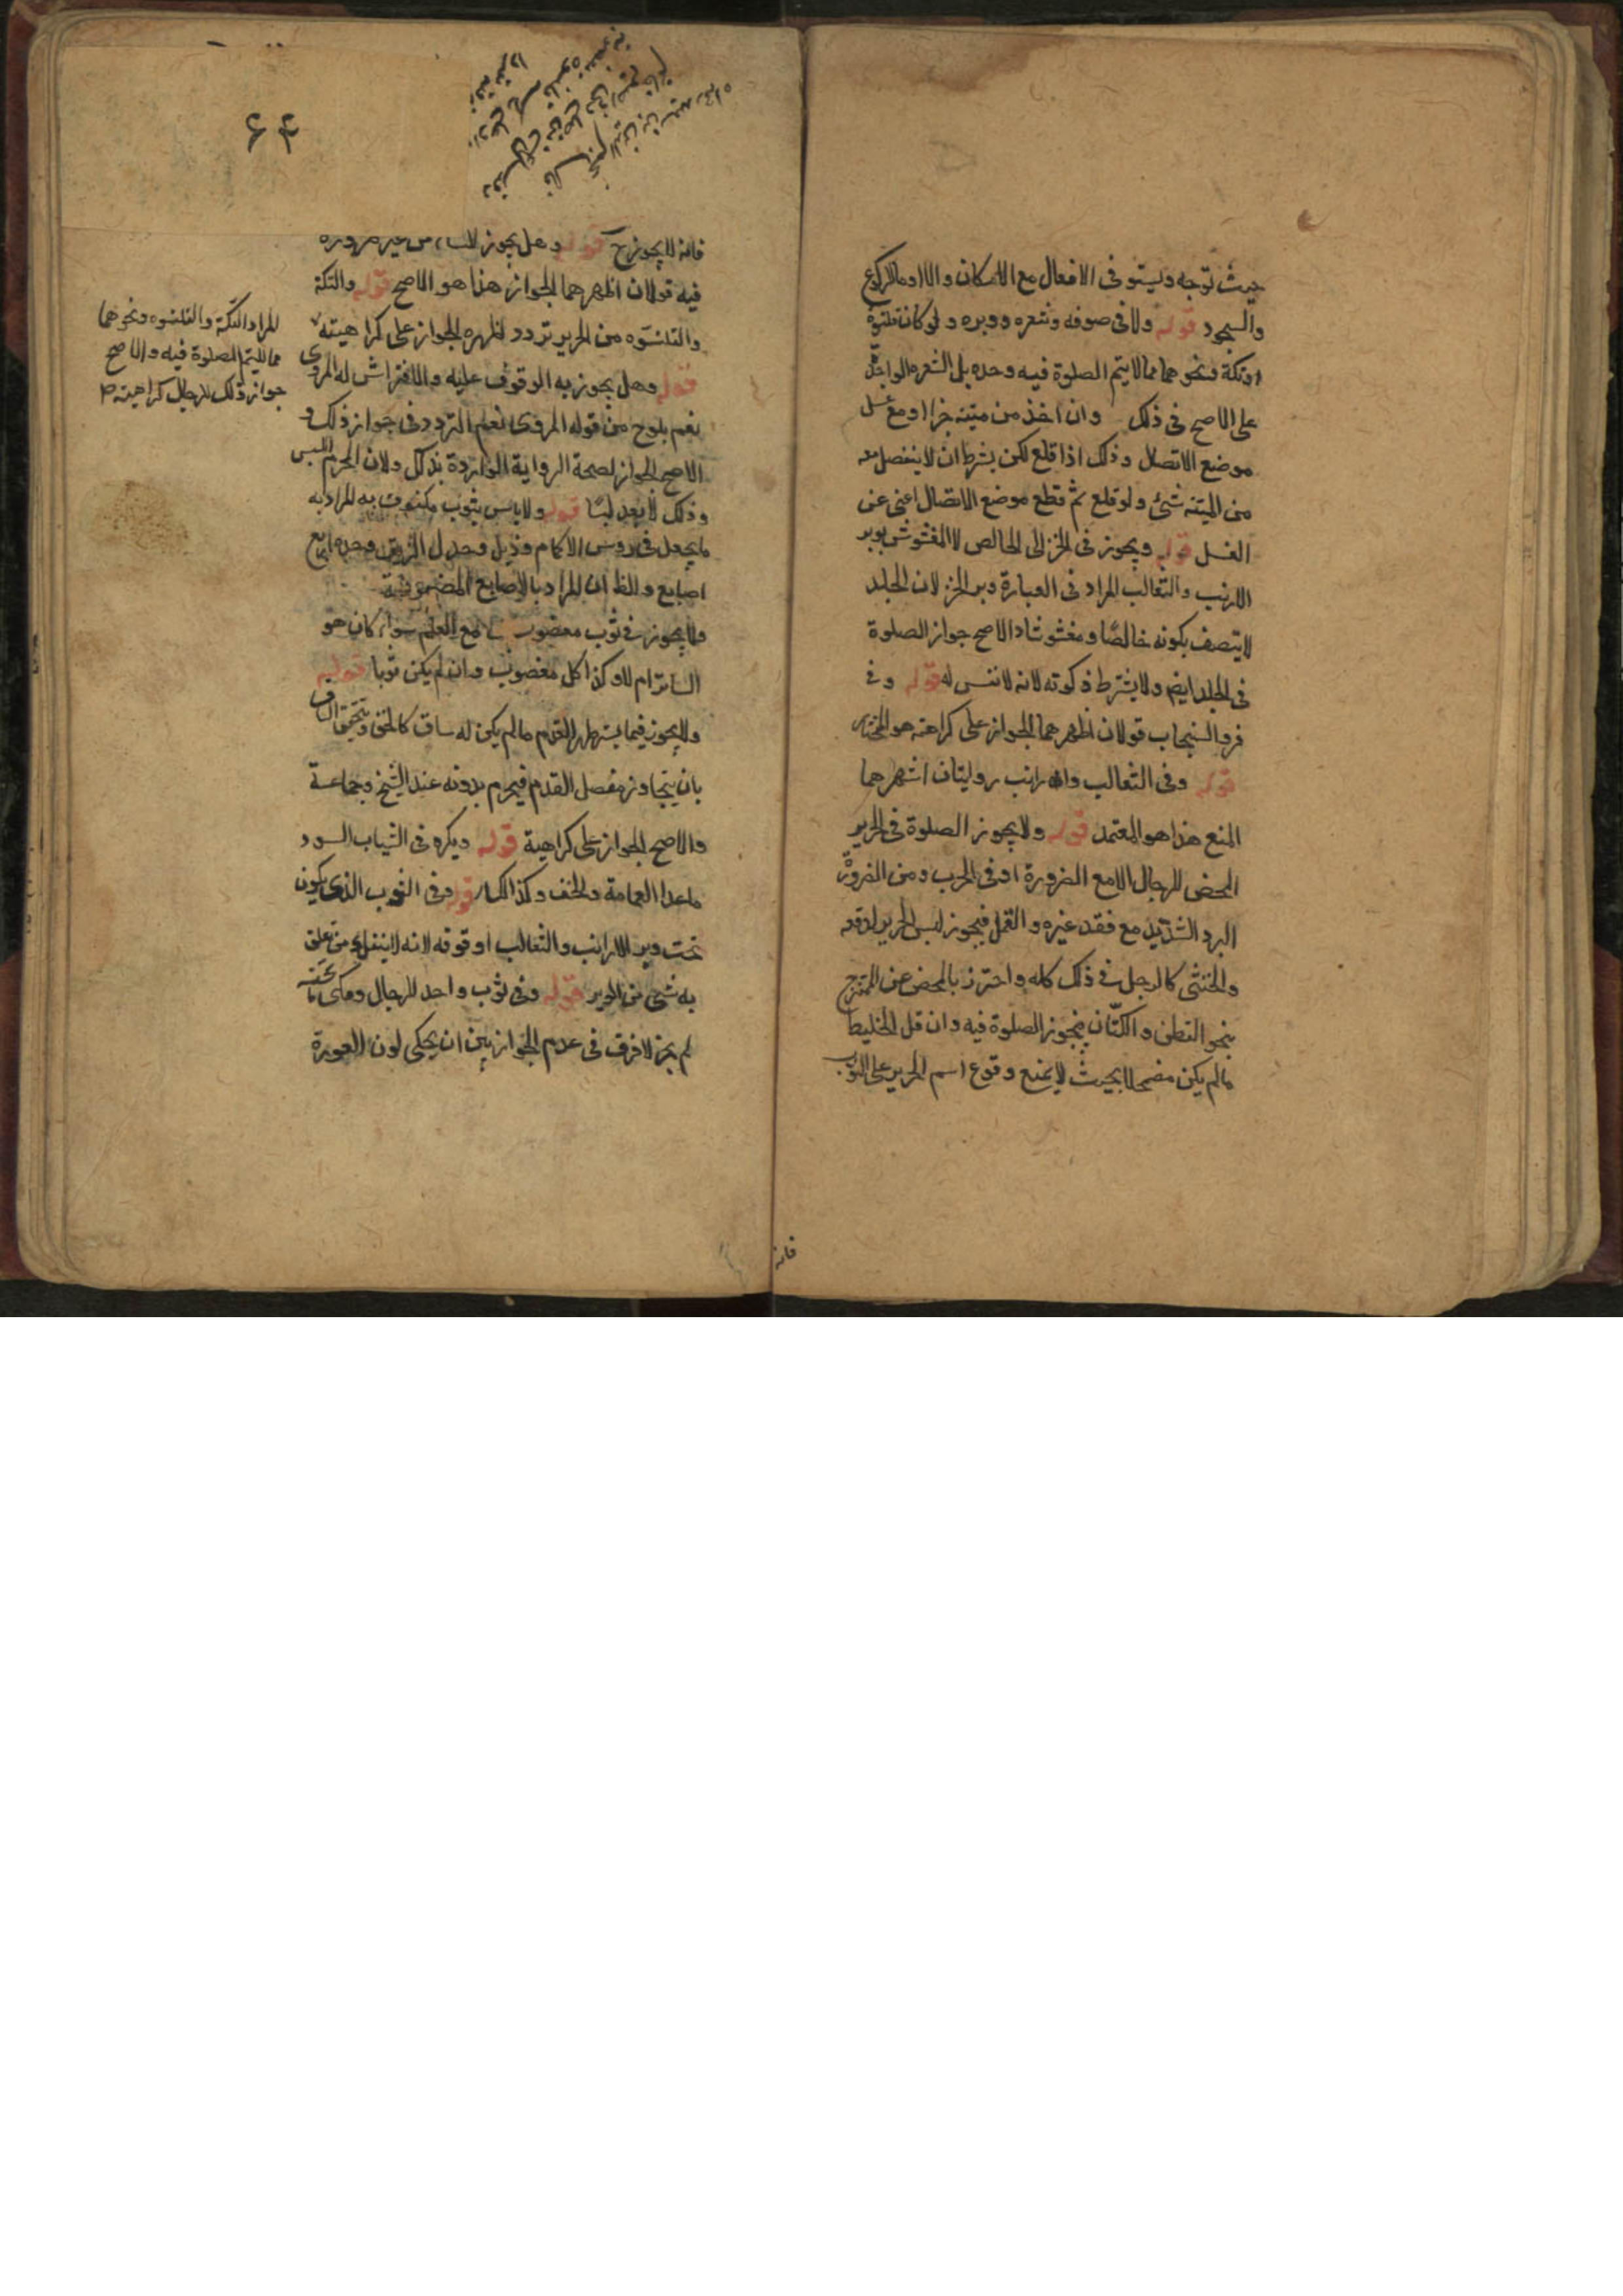 حيث توجه ويستوفى الافعال مع الامكان والا اومأ للركوع
والسجود قوله ولا فى صوفه وشعره ووبره ولو كان قلنسوة
او تكة ونحوهما مما لا يتم الصلوة فيه وحده بل الشعره الواحدة
على الاصح فى ذلك وان اخذ من ميتة جزا او مع غسل
موضع الاتصال وذلك اذا قلع لكن بشرط ان لا ينفصل معه
من الميتة شئ ولو قلع ثم قطع موضع الاتصال اغنى عن
الغسل قوله ويجوز فى الخز الخالص لا المغشوش بوبر
الارانب والثعالب المراد فى العبارة وبر الخز لان الجلد
لا يتصف بكونه خالصا ومغشوشا والاصح جواز الصلوة
فى الجلد ايضا ولا يشترط ذكوته لانه لا نفس له قوله وفى
فرو السنجاب قولان اظهرهما الجواز على كراهته هو المختار
قوله وفى الثعالب والارانب روايتان اشهرهما
المنع هذا هو المعتمد قوله ولا يجوز الصلوة فى الحرير
المحض للرجال الا مع الضرورة او فى الحرب ومن الضرورة
البرد الشديد مع فقد غيره والقمل فيجوز لبس الحرير لدفعه
والخنثى كالرجل فى ذلك كله واحترز بالمحض عن الممتزج
بنحو القطن والكتّان فيجوز الصلوة فيه وان قل الخليط
ما لم يكن مضمحلا بحيث لا يمنع وقوع اسم الحرير على الثوب
فانه
۶۴
فانه لا يجوز ح قوله وهل يجوز للنساء من غير ضرورة
فيه قولان اظهرهما الجواز هذا هو الاصح قوله والتكة
والقلنسوه من الحرير تردد اظهره الجواز على كراهيته
قوله وهل يجوز به الوقوف عليه والافتراش له المروى
نعم يلوح من قوله المروى نعم التردد فى جواز ذلك و
الاصح الجواز لصحة الرواية الواردة بذلك ولان المحرم اللبس
وذلك لا يعد لبسًا قوله ولا باس بثوب مكفوف به المراد به
ما يجعل فى رؤس الاكمام وذيل وحول الزيق وحده اربع
اصابع والظ ان المراد بالاصابع المضمومة
ولا يجوز فى ثوب مغصوب مع العلم سواء كان هو
الساتر ام لا وكذا كل مغصوب وان لم يكن ثوبا قوله
ولا يجوز فيما يستر ظهر القدم ما لم يكن له ساق كالخف ويتحقق الساق
بان يتجاوز مفصل القدم فيحرم بدونه عند الشيخ وجماعة
والاصح الجواز على كراهية قوله ويكره فى الثياب السود
ما عدا العمامة والخف وكذا الكساء قوله وفى الثوب الذى يكون
تحت وبر الارانب والثعالب او فوقه لانه لا ينفك من تعلق
به شئ من الوبر قوله وفى ثوب واحد للرجال ولو حكى ما تحته
لم يجز لا فرق فى عدم الجواز بين ان يحكى لون العورة
المراد التكة والقلنسوه ونحوهما
مما لا يتم الصلوة فيه والاصح
جواز ذلك للرجال كراهيته